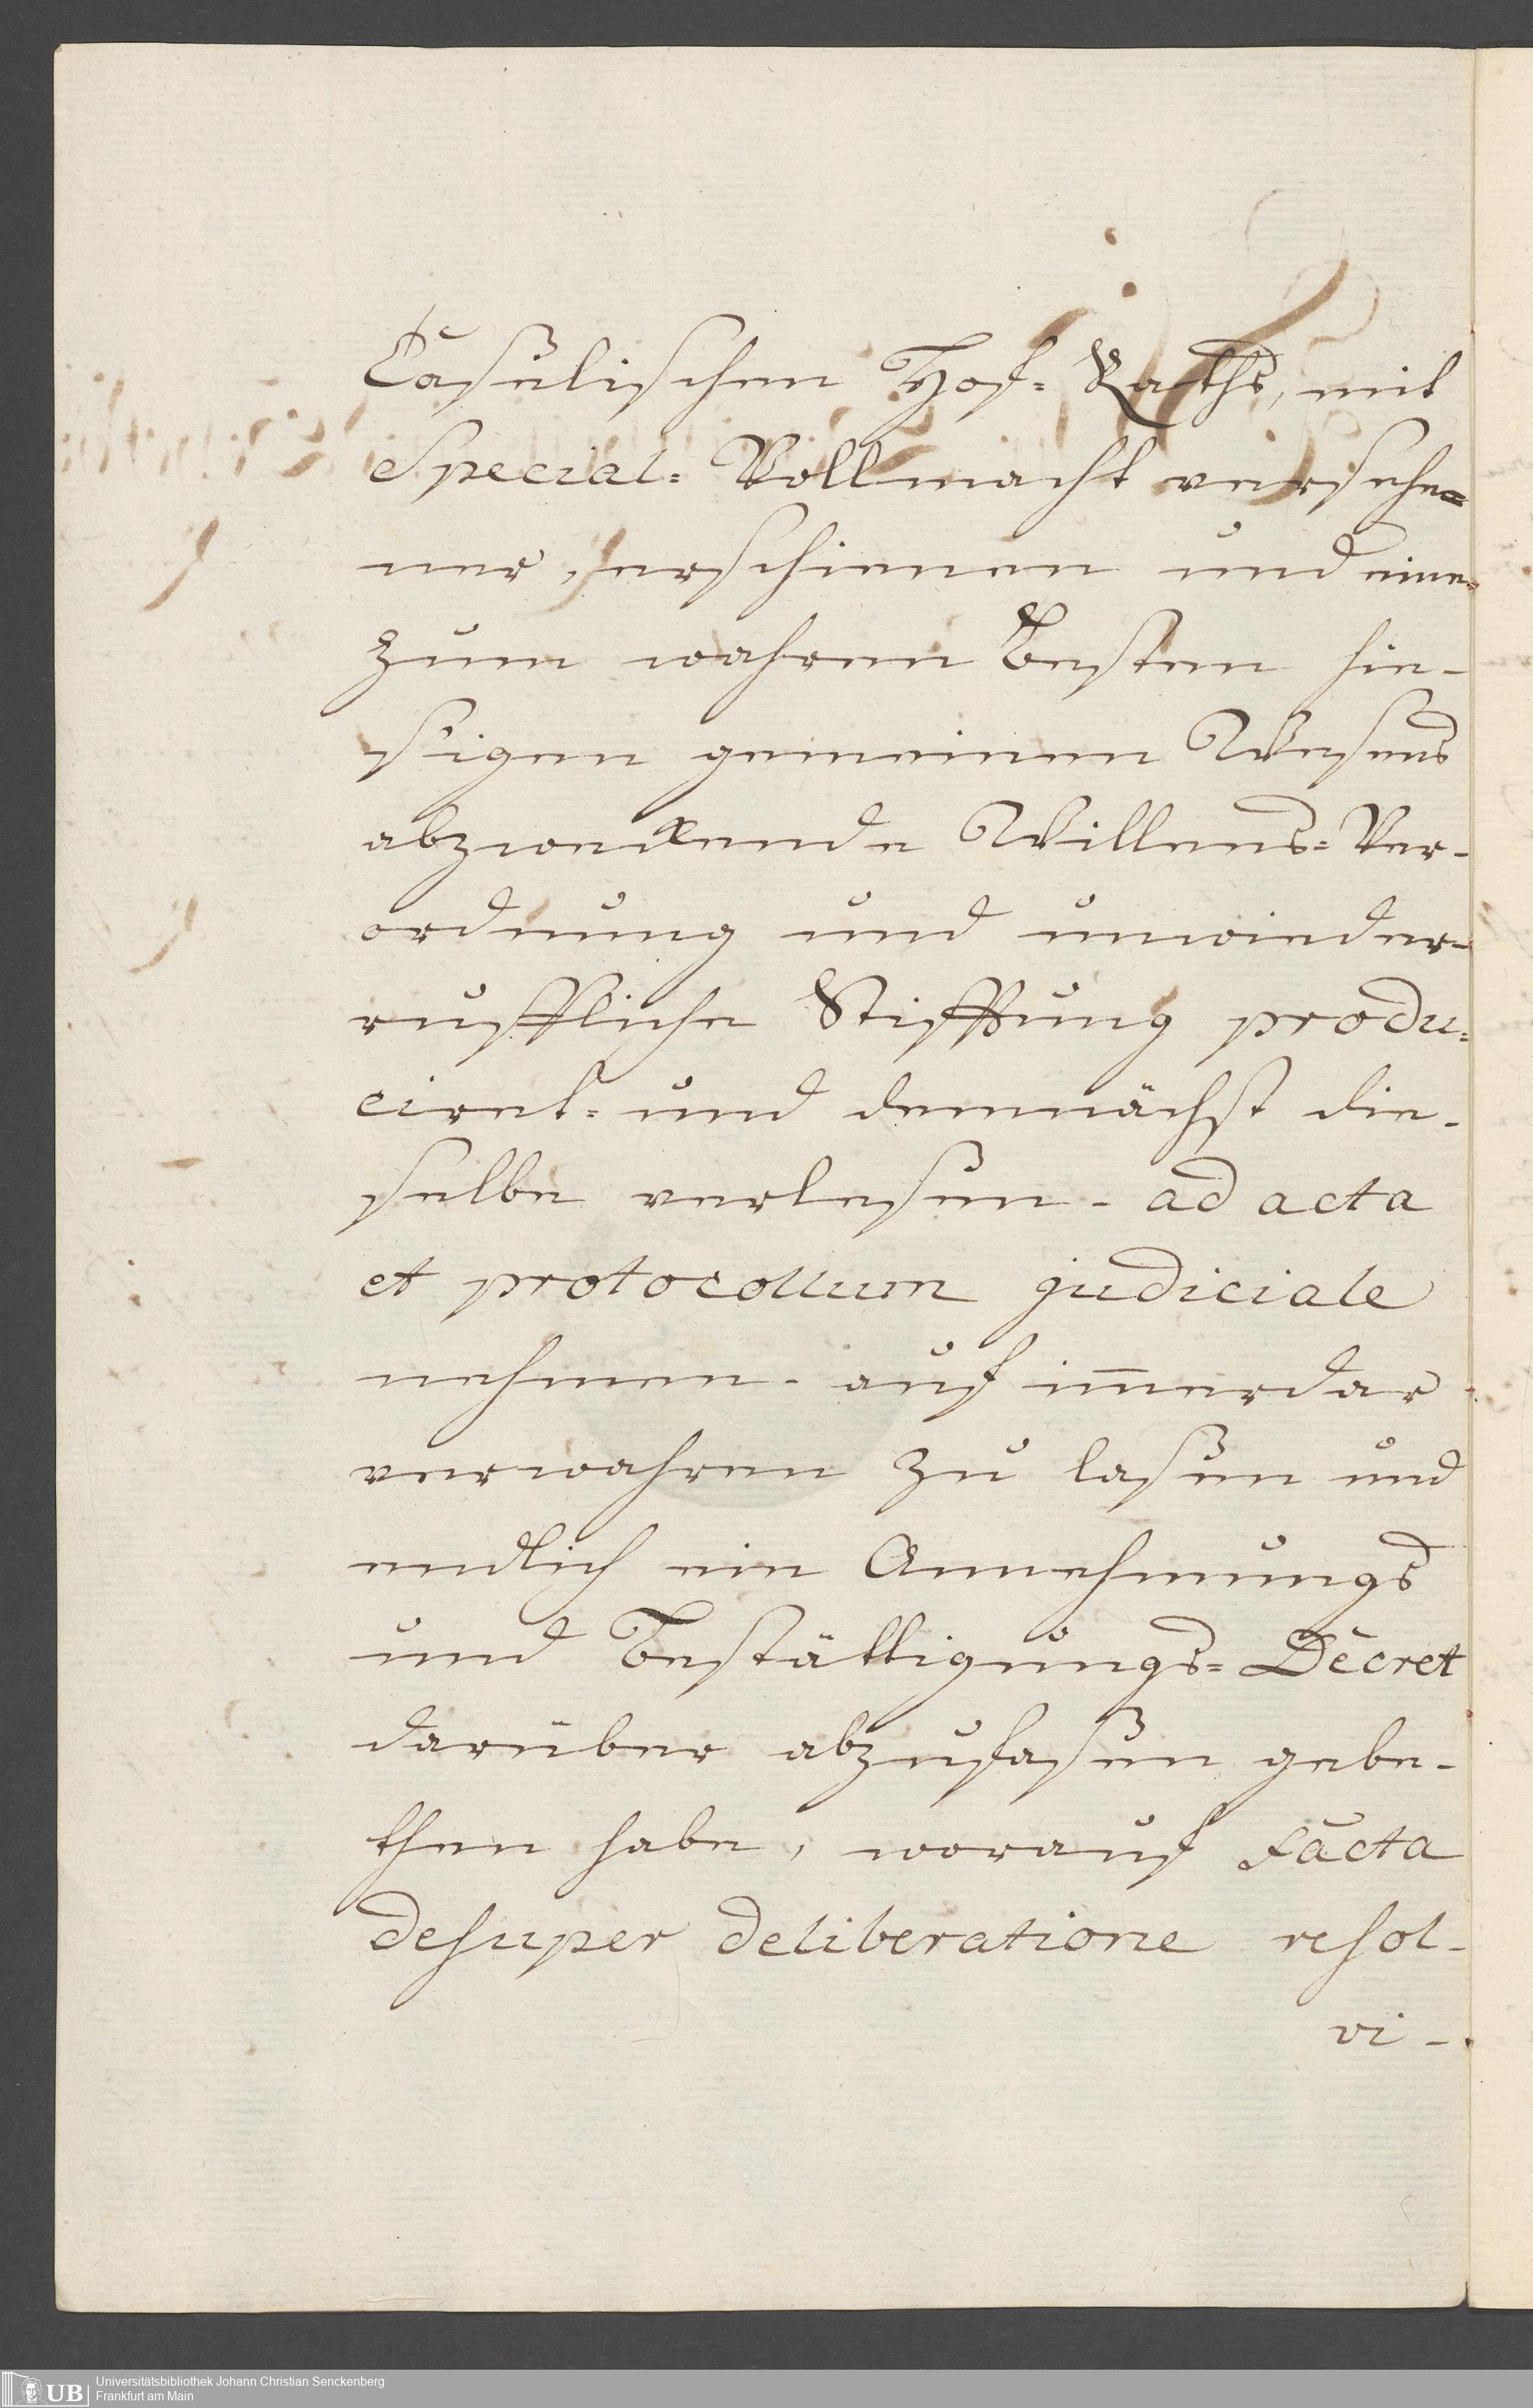 Caßelischen Hof= Raths, mit
Special= Vollmacht versehe=
ner, erschienen und eine=
zum wahren Besten hie-
sigen gemeinen Wesens
abzweckende Willens= Ver-
ordnung und unwieder-
ruffliche Stifftung produ=
ciret= und demnächst die-
selbe verleßen- ad acta
et protocollum judiciale
nehmen- auf im̄erdar
verwahren zu laßen und
endlich ein Annehmungs
und Bestättigungs= Decret
darüber abzufaßen gebe-
then habe, worauf facta
desuper deliberatione resol-
vi-
UB Universitätsbibliothek Johann Christian Senckenberg
Frankfurt am Main